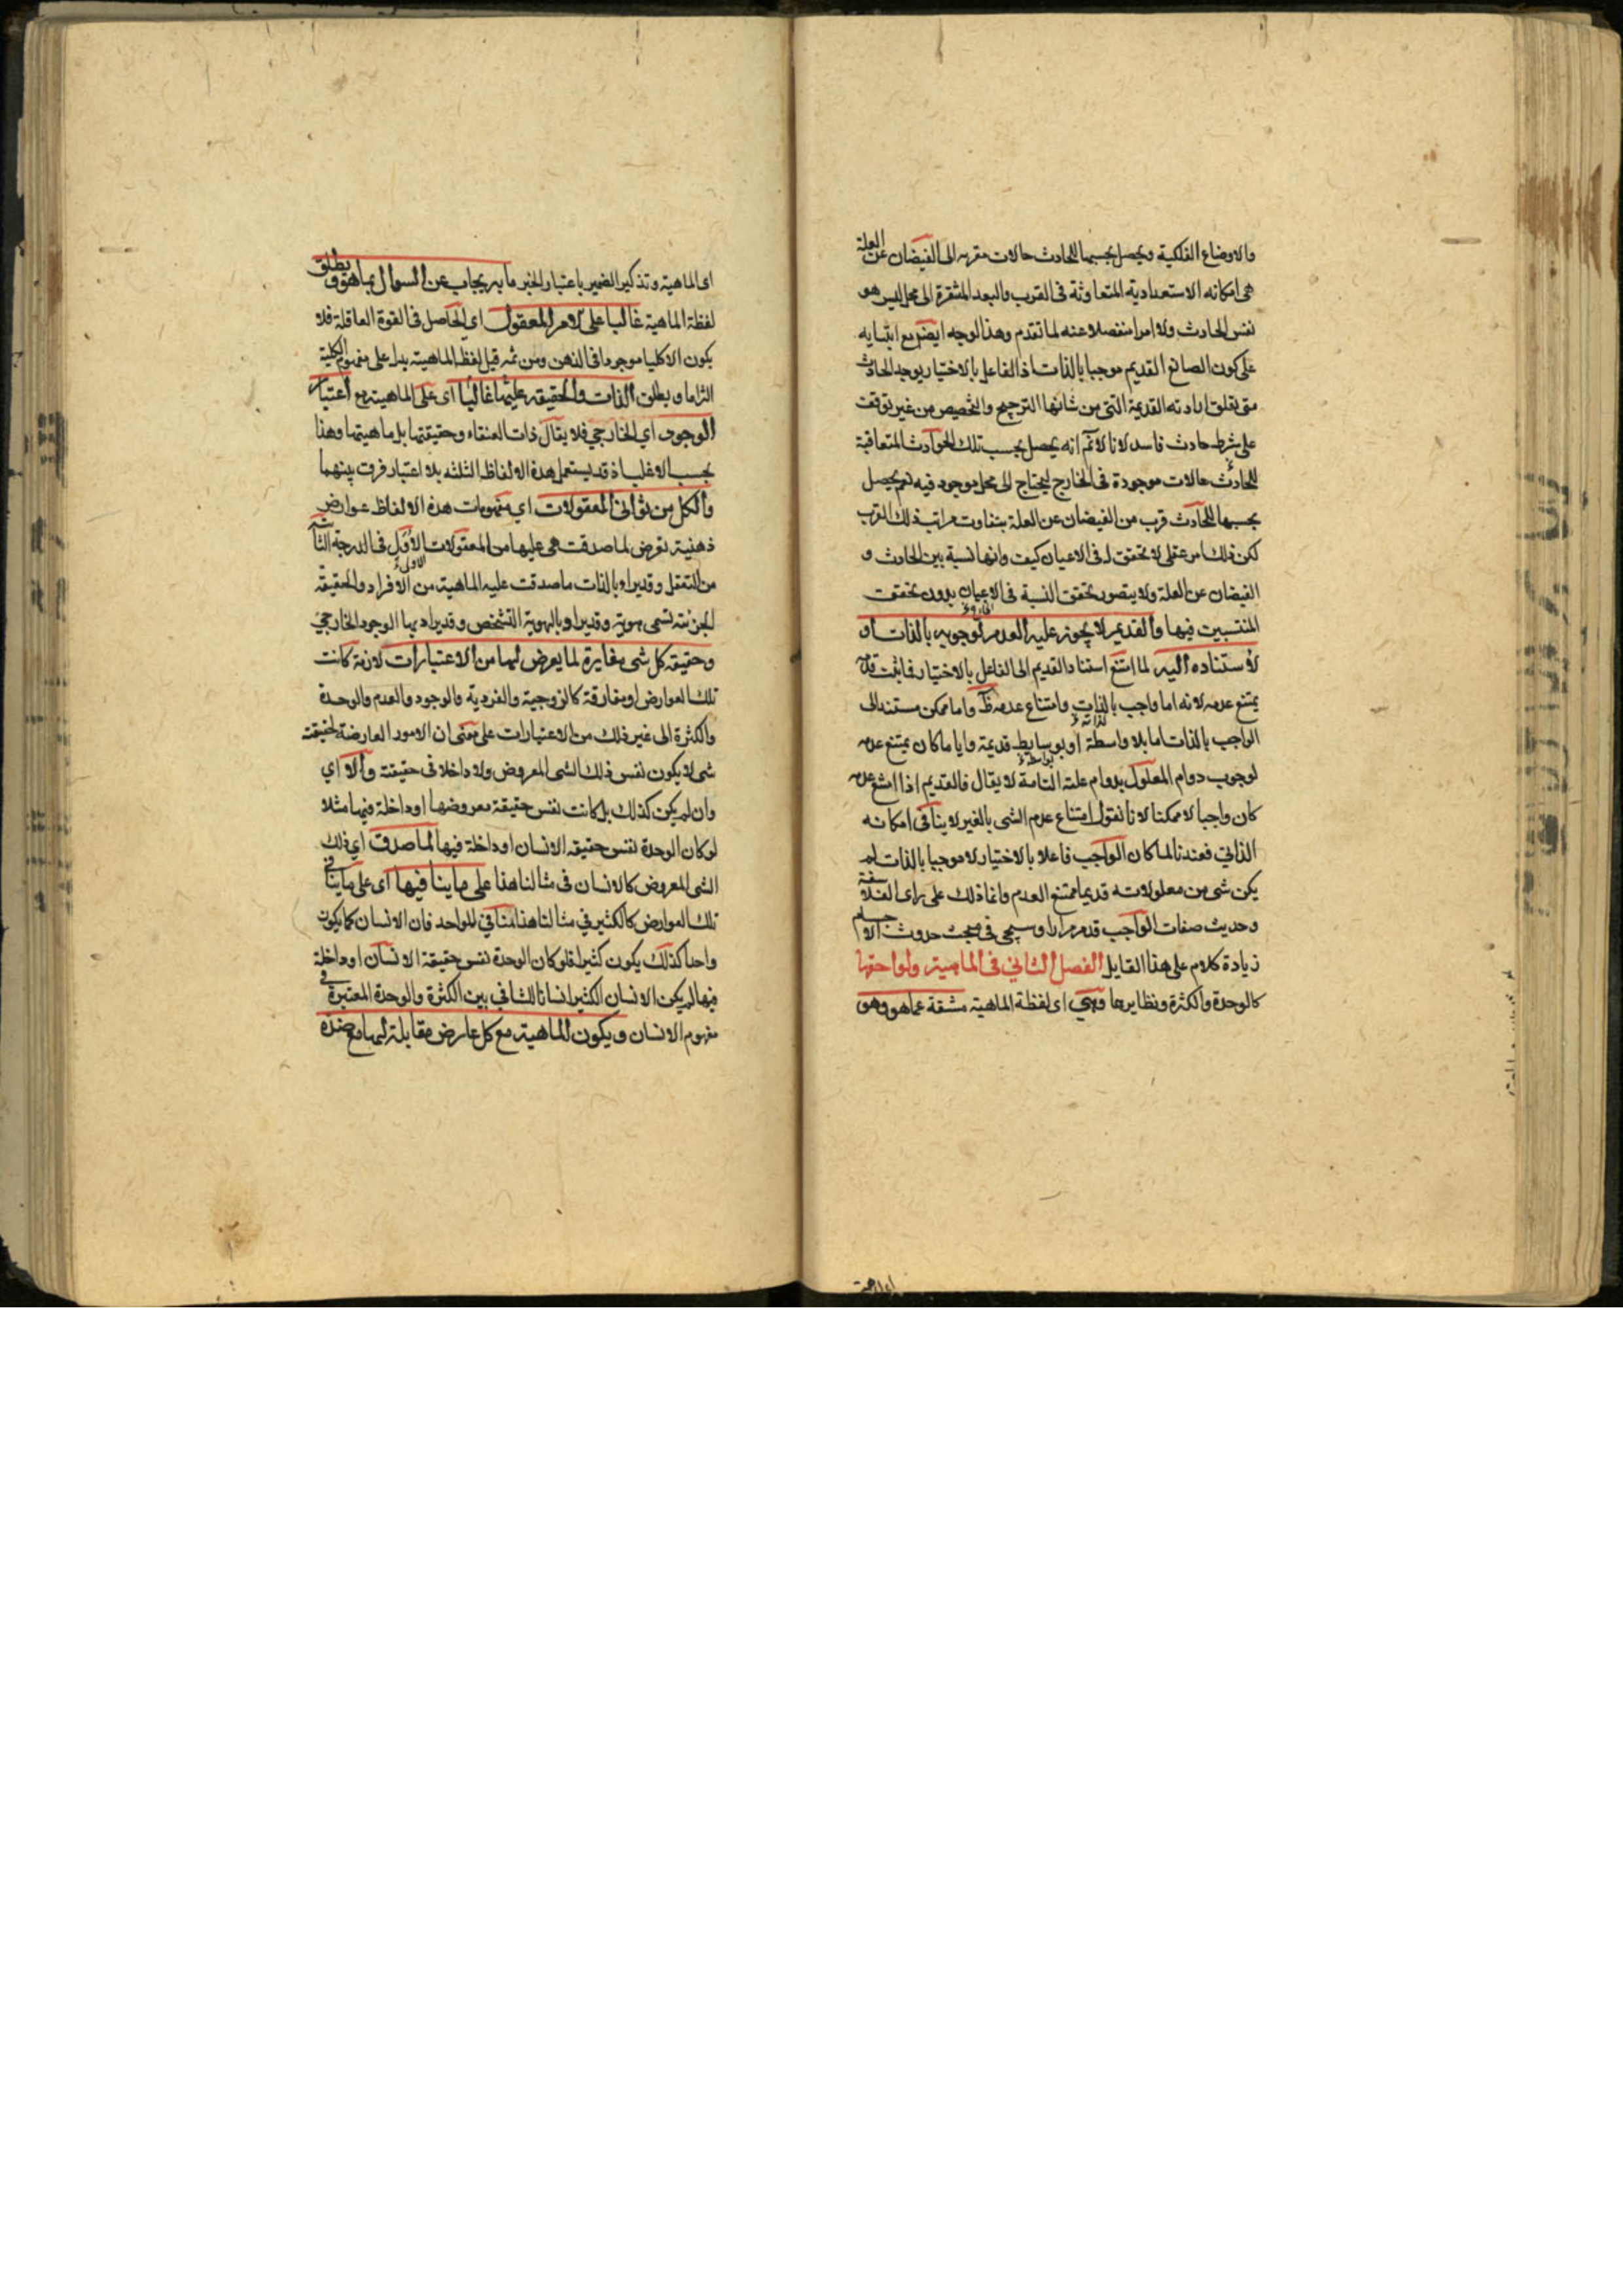 والاوضاع الفلكية ويحصل بحسبها للحادث حالات مقربه الى الفيضان عن العلة
هى امكانه الاستعدادية المتعاوتة فى القرب والبعد المفتقرة الى محل ليس هو
نفس الحادث ولا امرا منفصلا عنه لما تقدم وهذا الوجه ايضم مع ابتنايه
على كون الصانع القديم موجبا بالذات اذ الفاعل بالاختيار يوجد الحادث
متى تعلق ارادته القديمة التى من شانها الترجيح والتخصيص من غير توقف
على شرط حادث فاسد لانا لانم انه يحصل بحسب تلك الحوادث المتعاقبة
للحادث حالات موجودة فى الخارج ليحتاج الى محل موجود فيه نعم يحصل
بحسبها للحادث قرب من الفيضان عن العلة بتفاوت مراتب ذلك القرب
لكن ذلك امر عقلى لا تحقق له فى الاعيان كيف وانها نسبة بين الحادث و
الفيضان عن العلة ولا يتصور تحقق النسبة فى الاعيان بدون تحقق
المنتسبين فيها والقديم لا يجوز عليه العدم لوجوبه بالذات او
لاستناده اليه لما امتنع استناد القديم الى الفاعل بالاختيار فما ثبت قدمه
يمتنع عدمه لانه اما واجب بالذات وامتناع عدمه ظ واما ممكن مستند الى
الواجب بالذات اما بلا واسطة او بوسايط قديمة وايا ما كان يمتنع عدمه
لوجوب دوام المعلول بدوام علته التامة لا يقال فالقديم اذا امتنع عدمه
كان واجبا لا ممكنا لانا نقول امتناع عدم الشى بالغير لا ينافى امكانه
الذاتي فعندنا لما كان الواجب فاعلا بالاختيار لا موجبا بالذات لم
يكن شى من معلولاته قديما ممتنع العدم وانما ذلك على راى الفلاسفة
وحديث صفات الواجب قد مر مرارا وسيجى فى مبحث حدوث الاجسام
زيادة كلام على هذا القايل الفصل الثاني فى الماهية ولواحقها
كالوحدة والكثرة ونظايرها وهى اى لفظة الماهية مشتقة عما هو وهو
اى الماهية وتذكير الضمير باعتبار الخبر ما به يجاب عن السوال بما هو ويطلق
لفظة الماهية غالبا على الامر المعقول اى الحاصل فى القوة العاقلة فلا
يكون الا كليا موجودا فى الذهن ومن ثمه قيل لفظ الماهية يدل على مفهوم الكلية
التزاما ويطلق الذات والحقيقة عليها غالبا اى على الماهية مع اعتبار
الوجود اي الخارجي فلا يقال ذات العنقاء وحقيقتها بل ماهيتها وهذا
بحسب الاغلب اذ قد يستعمل هذه الالفاظ الثلثه بلا اعتبار فرق بينهما
والكل من ثوانى المعقولات اي مفهومات هذه الالفاظ عوارض
ذهنية تعرض لما صدقت هى عليها من المعقولات الاول فى الدرجة الثانية
من التعقل وقد يراد بالذات ما صدقت عليه الماهية من الافراد والحقيقة
الجزئية تسمى هوية وقد يراد بالهوية التشخص وقد يراد بها الوجود الخارجي
وحقيقة كل شى مغايرة لما يعرض لها من الاعتبارات لازمة كانت
تلك العوارض او مفارقة كالزوجية والفردية والوجود والعدم والوحدة
والكثرة الى غير ذلك من الاعتبارات على معنى ان الامور العارضة لحقيقة
شى لا يكون نفس ذلك الشى المعروض ولا داخلا فى حقيقته والا اي
وان لم يكن كذلك بل كانت نفس حقيقة معروضها او داخلة فيها مثلا
لو كان الوحدة نفس حقيقه الانسان او داخلة فيها لما صدق اي ذلك
الشى المعروض كالانسان فى مثالنا هذا على ما ينافيها اى على ما ينافى
تلك العوارض كالكثير في مثالنا هذا المنافي للواحد فان الانسان كما يكون
واحدا كذلك يكون كثيرا فلو كان الوحدة نفس حقيقة الانسان او داخلة
فيها لم يكن الانسان الكثير انسانا للتنافي بين الكثرة والوحدة المعتبرة فى
مفهوم الانسان ويكون الماهية مع كل عارض مقابلة لها مع ضده